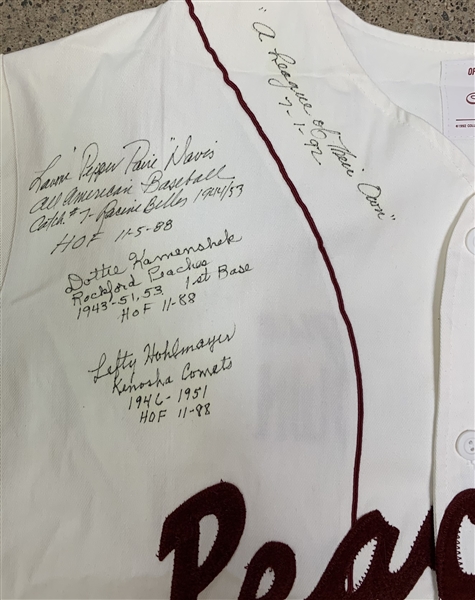 "A League of Their Own"
7-1-92
Lavone "Pepper Paire" Davis
All American Baseball
Catch. #7 - Racine Belles 1944/53
HOF 11-5-88
Dottie Kamenshek
Rockford Peaches
1943-51, 53 1st Base
HOF 11-88
Lefty Hohlmayer
Kenosha Comets
1946-1951
HOF 11-88
Peac